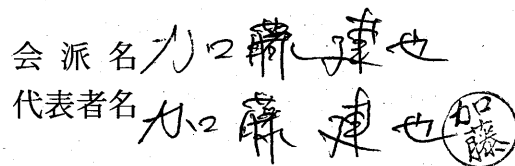 会派名 加藤建也
代表者名 加藤建也 加藤